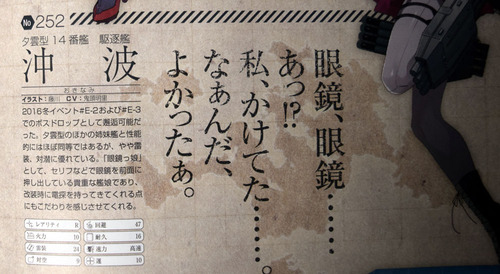 No 252
夕雲型 14番艦　駆逐艦
沖波
おきなみ
イラスト：藤川　CV：鬼頭明里
2016冬イベント#E-2および#E-3
でのボスドロップとして邂逅可能だ
った。夕雲型のほかの姉妹艦と性能
的にはほぼ同等ではあるが、やや雷
装、対潜に優れている。「眼鏡っ娘」
として、セリフなどで眼鏡を前面に
押し出している貴重な艦娘であり、
改装時に電探を持ってきてくれる点
にもこだわりを感じさせてくれる。
レアリティ R
回避 47
火力 10
耐久 16
雷装 24
速力 高速
対空 9
運 10
眼鏡、眼鏡……
あっ!?
私、かけてた……。
なぁんだ、
よかったぁ。